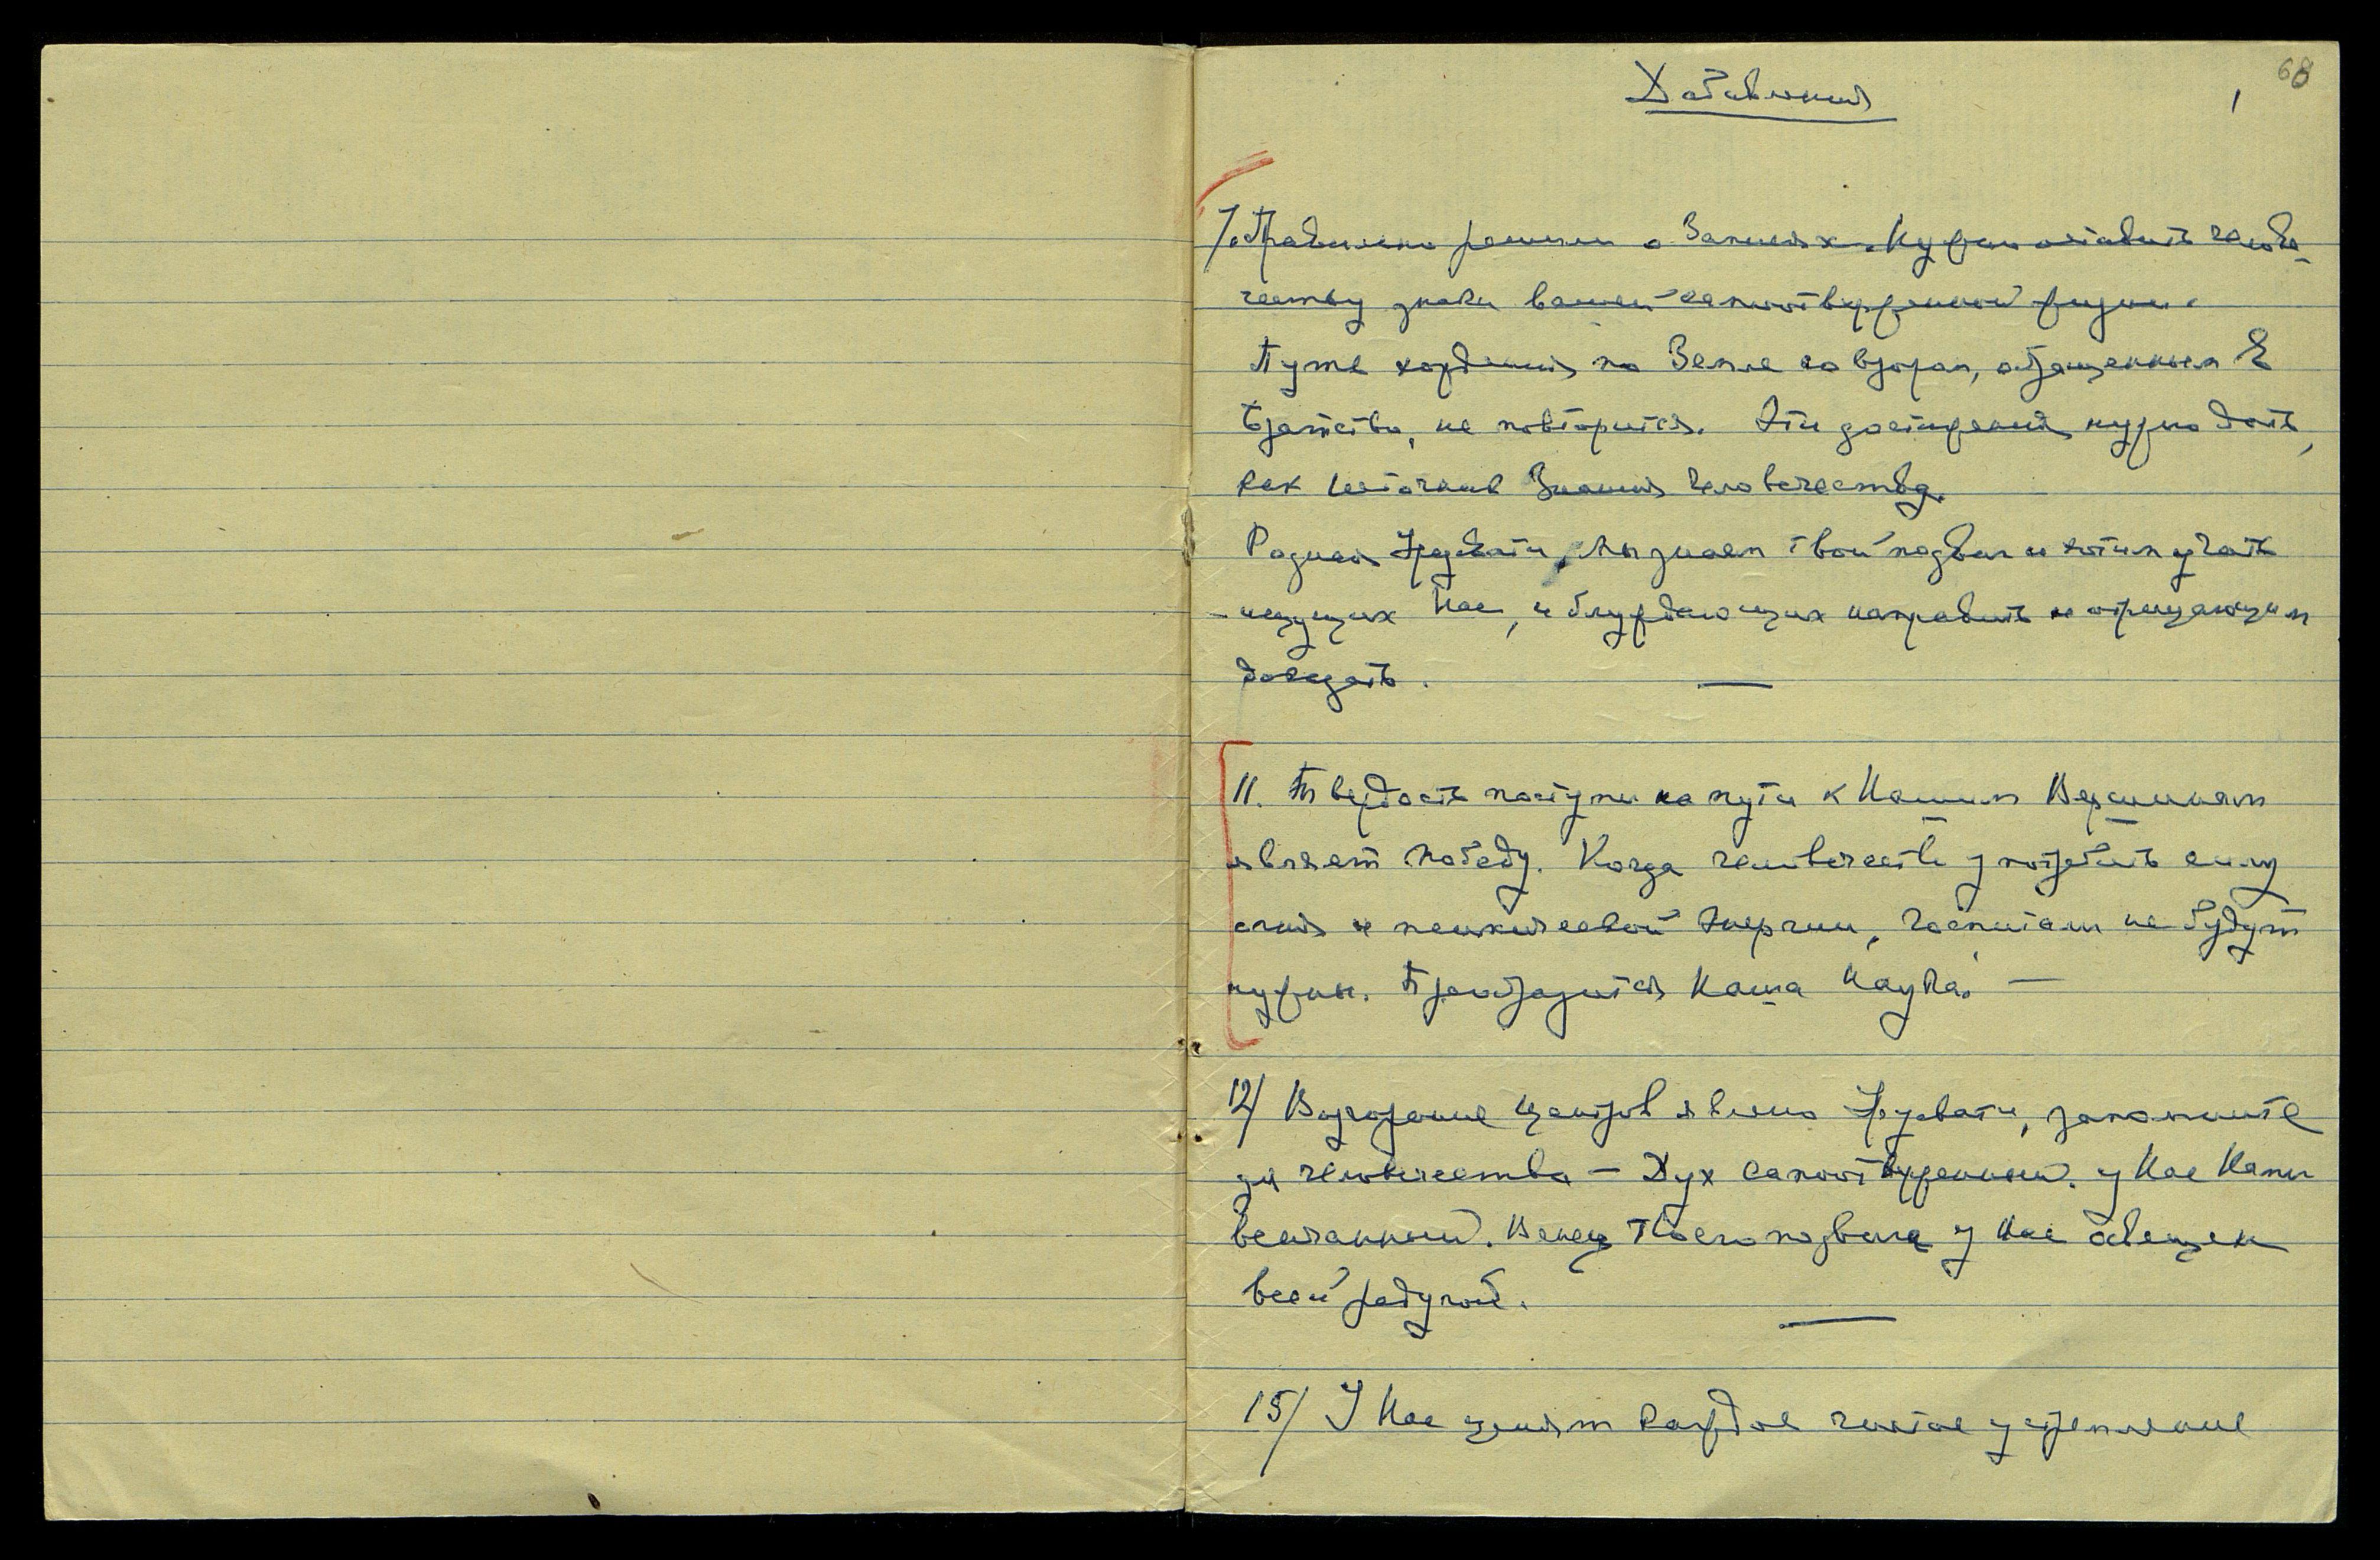 68
1
Добавления
7. Правильно решили о Записях. Нужно оставить челове-
честву знаки вашей самоотверженной жизни.
Путь хождения по Земле со взором, обращенным к
Братству, не повторится. Эти достижения нужно дать,
как источник Знания человечеству.
Родная Урусвати, Мы знаем твой подвиг и хотим учить
ищущих Нас, и блуждающих направить и отрицающим
доказать.
11. Твердость поступи на пути к Нашим Вершинам
являет победу. Когда человечество употребит силу
огня и психической энергии, госпитали не будут
нужны. Преобразится Наша Наука. —
12/ Возгорание центров явлено Урусвати, запомните
для человечества — Дух самоотверженный. у Нас Нами
венчанный. Венец твоего подвига у Нас освещен
всей радугой.
15/ У Нас ценят каждое чистое устремление